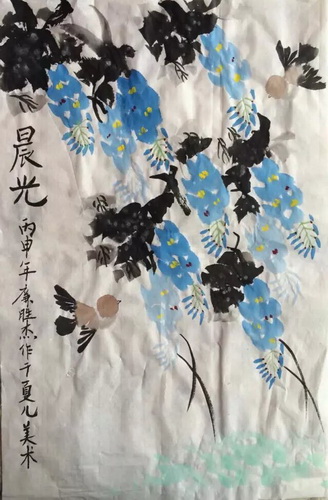 晨光
丙申年廉胜杰作于夏儿美术